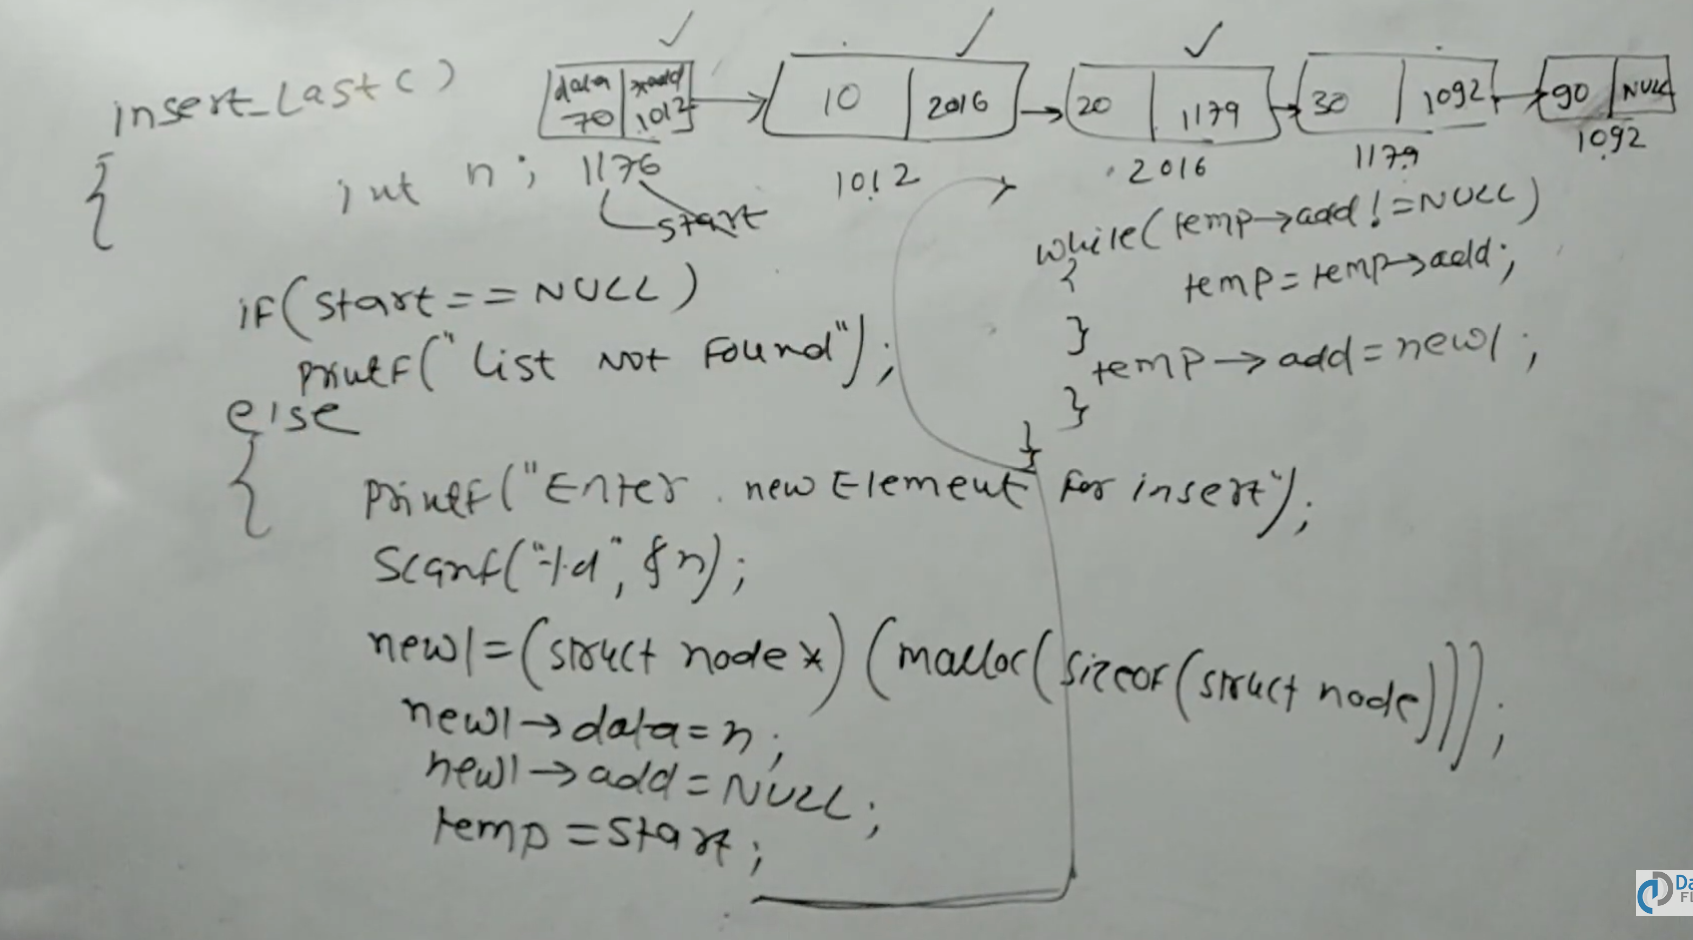 insert_Last()
{
int n;
data *add
70 1012
1176
start
10 2016
1012
20 1179
2016
30 1092
1179
90 NULL
1092
if(start==NULL)
printf("List NOT Found");
else
{
printf("Enter new Element for insert");
scanf("%d", &n);
new1=(struct node*)(malloc(sizeof(struct node)));
new1→data=n;
new1→add=NULL;
temp=start;
while(temp→add!=NULL)
{
temp=temp→add;
}
temp→add=new1;
}
}